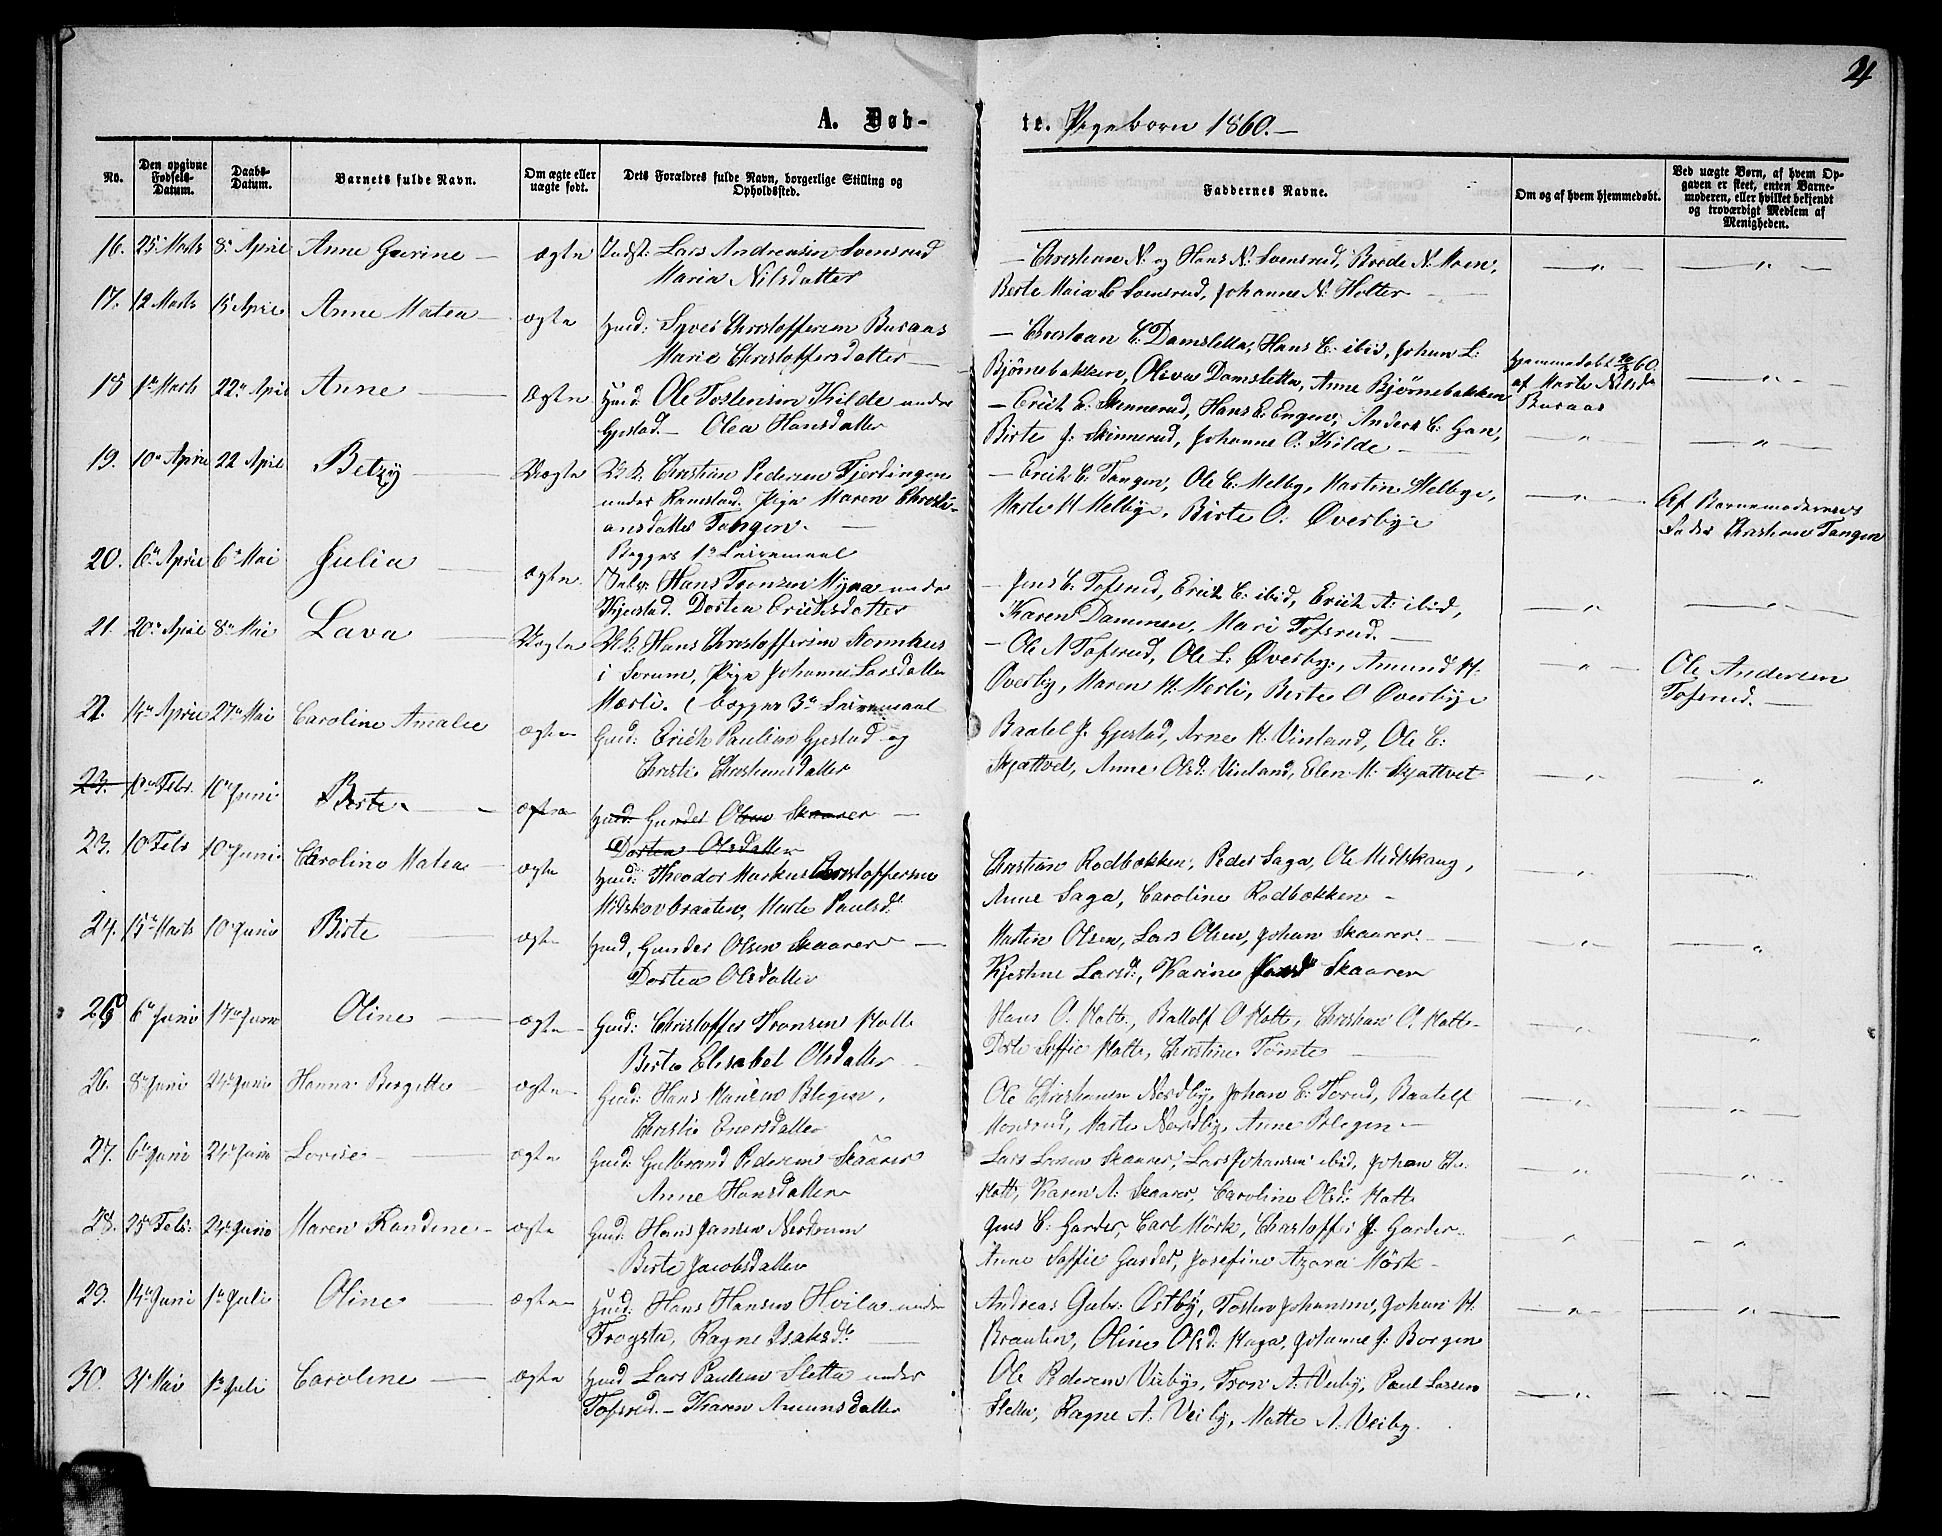 4
A. Døb-
te. Pigebørn 1860.—
No.
Den opgivne Fødsels-Datum.
Daabs-Datum.
Barnets fulde Navn.
Om ægte eller uægte født.
Dets Forældres fulde Navn, borgerlige Stilling og Opholdssted.
Faddernes Navne.
Om og af hvem hjemmedøbt.
Ved uægte Børn, af hvem Opgaven er skeet, enten Barnemoderen, eller hvilket bekjendt og troværdigt Medlem af Menigheden.
16. 25 Marts 8 April Anne Gurine — ægte Lars Andreasen Svensrud
Maria Nilsdatter
— Christian N. og Hans N. Svensrud, Brede N. Moen,
Berte Maia Svensrud, Johanne N. Holter —
17. 12 Marts 15 April Anne Matea — ægte Huusd: Syver Christoffersen Busaas
Marie Christoffersdatter —
— Christian C. Damsletta, Hans C. ibid, Johan L.
Bjørnebakken, Oliva Damsletta, Anne Bjørnebakken
Hjemmedøbt 60.
af Marte Nilsd.
Busaas
18 1 Marts 22 April Anne — Ægte Huusd: Ole Tostensen Kilde under
Gjestad — Olea Hansdatter
— Erich E. Skinnerud, Hans E. Engen, Anders C. Gan,
Birte J. Skinnerud, Johanne O. Kilde —
19. 10 April 22 April Betzy — Uægte Christian Pedersen Fjerdingen
under Ramstad. Pige Maren Christi-
ansdatter Tangen. —
Begges 1ste Leiermaal
— Erich C. Tangen, Ole C. Melby, Martin Melbye,
Marte M Melbye, Birte O. Øverbye
Af Barnemoderens
Fader Christian Tangen
20. 6 April 6 Mai Julia — ægte Hans Tronsen Myraa under
Kjerstad. Dortea Erichsdatter
— Jens C. Tofsrud, Erich C. ibid, Erich A. ibid,
Karen Dammen, Mari Tofsrud. —
21. 20 April 8 Mai Lava — Uægte Hans Christoffersen
i Sorum, Pige Johanne Larsdatter
Mærli. (begges 3die Leiermaal
— Ole A Tofsrud, Ole L. Øverbye, Amund H.
Øverby, Maren H. Merli, Birte O Øverbye
Ole Andersen
Tofsrud. —
22. 14 April 27 Mai Caroline Amalie ægte Huusd: Erich Paulsen Gjestad og
Christi Christiansdatter
Baatel J. Gjestad, Arne H. Vinland, Ole E.
Skjattvet, Anne Olsd: Vinland, Elen M. Skjattvet
23. 10 Febr. 10 Juni Birte — ægte Huusd: Gunder Olsen Skaarer —
Dortea Olsdatter
23. 10 Feb 10 Juni Caroline Matea — ægte Huusd: Theodor Markus Christoffersen
Midskovbraaten, Marte Paulsd.
Christian Rodbækken, Peder Saga, Ole Midtskaug,
Anne Saga, Caroline Rodbækken —
24. 15 Marts 10 Juni Birte — ægte Huusd, Gunder Olsen Skaarer —
Dortea Olsdatter
Martin Olsen, Lars Olsen, Johan Skaarer.
Kjestine Larsd:, Karine Skaarer
25 6 Juni 17 Juni Oline — ægte Huusd: Christoffer Tronsen Motte
Birte Elisabet Olsdatter
Hans O. Motte, Battolf O Motte, Christian O. Motte
Dorte Soffie Motte, Christine Tømte —
26. 8 Juni 24 Juni Hanna Bergitte — ægte Huusd: Hans Blegen,
Christi Enersdatter
Ole Christiansen Nordby, Johan E. Torud, Baatolf
Monsrud, Marte Nordby, Anne Blegen —
27. 6 Juni 24 Juni Lovise — ægte Huusd: Gulbrand Pedersen Skaarer
Anne Hansdatter
Lars Larsen Skaarer, Lars Johansen ibid, Johan
Motte, Karen A. Skaarer, Caroline Olsd: Motte
28. 25 Feb: 24 Juni Maren Randine — ægte Huusd: Hans Jansen Nordrum
Birte Jacobsdatter
Jens C. Garder, Carl Mørk, Christoffer J. Garder
Anne Soffie Garder, Josefine Azora Mørk —
29. 14 Juni 1 Juli Oline — ægte Huusd: Hans Hansen Hvila under
Frogsta, Ragne Isaksd. —
Andreas Gulbr: Østby, Tosten Johansen, Johan H.
Braaten, Oline Olsd: Haga, Johanne J. Borgen
30. 31 Mai 1 Juli Caroline — ægte Huusd Lars Paulsen Sletta under
Tofsrud. — Karen Amunsdatter
Ole Pedersen Veiby, Tron A. Veiby, Paul Larsen
Sletta, Ragne A. Veiby, Matte A. Veiby.